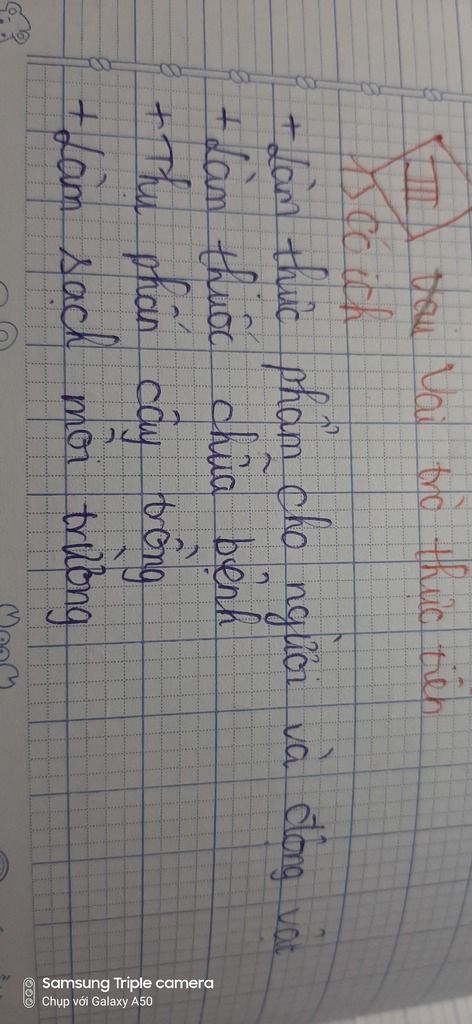 III Vai trò thực tiễn
1) Có ích
+ Làm thực phẩm cho người và động vật
+ Làm thuốc chữa bệnh
+ Thụ phấn cây trồng
+ Làm sạch môi trường
Samsung Triple camera
Chụp với Galaxy A50